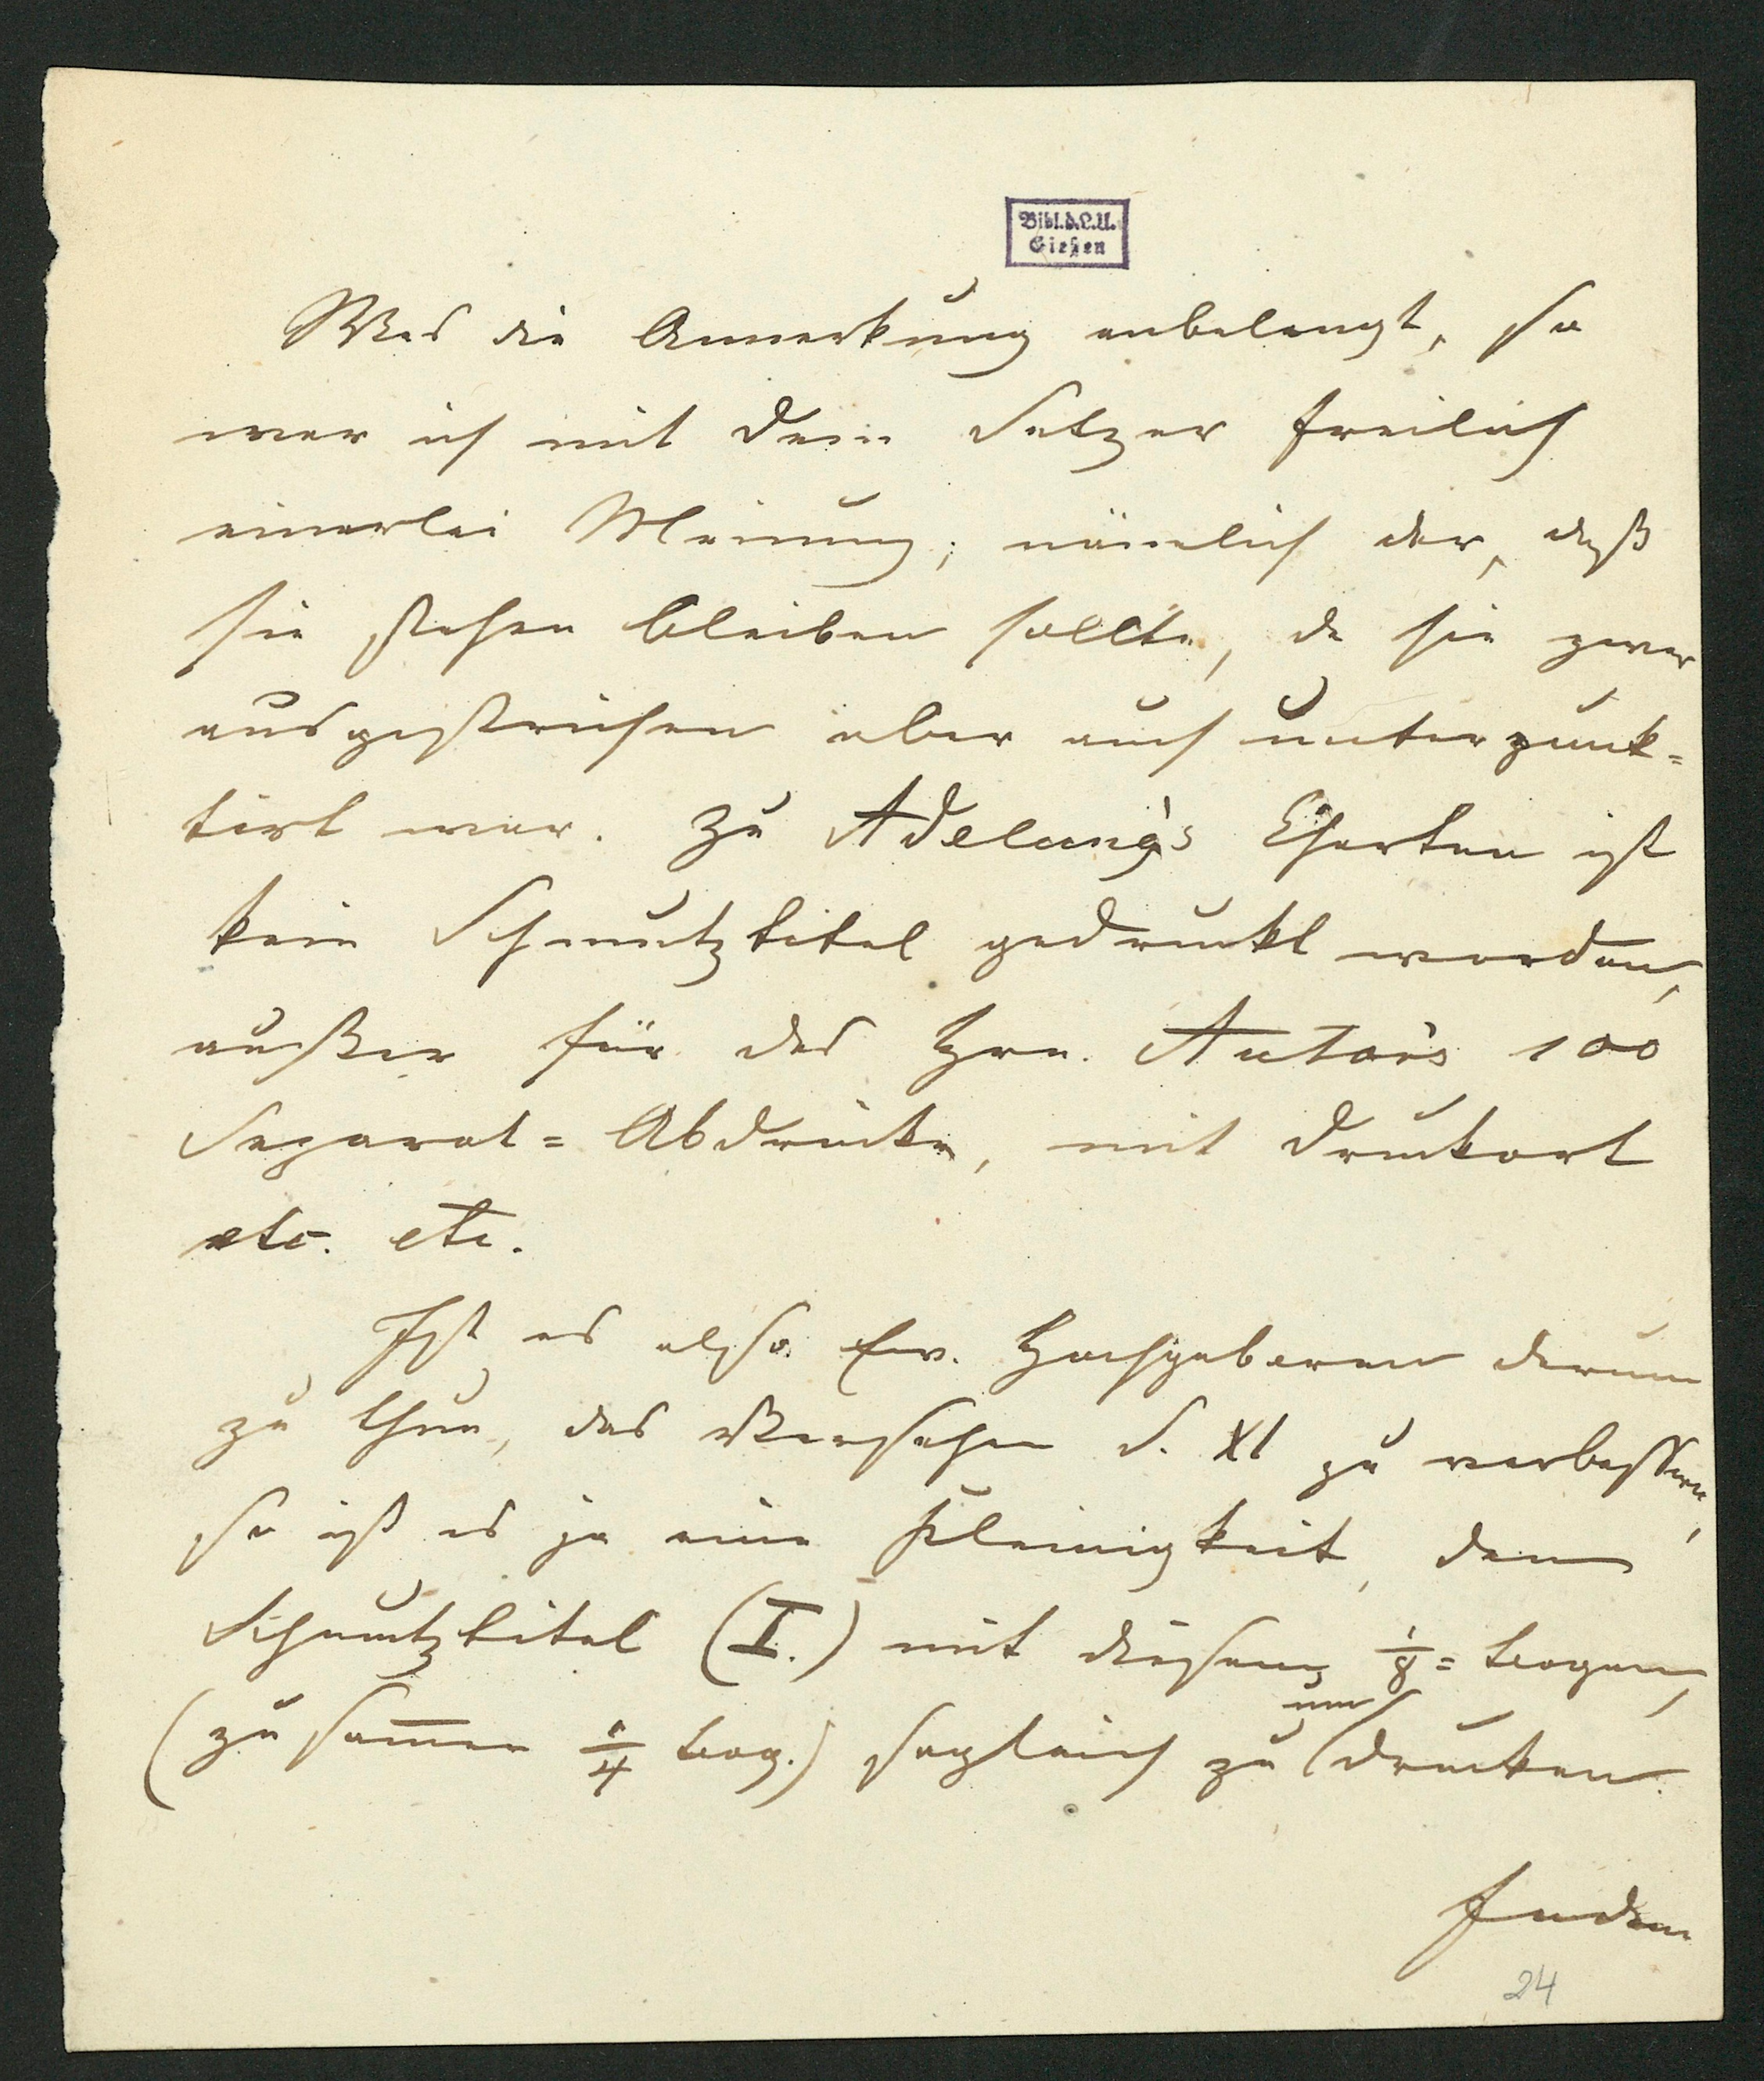 Bibl. d. L. U.
Gießen
Was die Anmerkung anbelangt, so
war ich mit dem Setzer freilich
einerlei Meinung; nämlich der, daß
sie stehen bleiben sollte, da sie zwar
ausgestrichen aber auch unterpunk=
tirt war. Zu Adelung's Charten ist
kein Schmutztitel gedruckt worden,
außer für des Hrn. Autors 100
Separat=Abdrücke, mit Druckort
etc. etc.
Ist es also Ew. Hochgeboren darum
zu thun, das Versehen S. XI zu verbessern,
so ist es ja eine Kleinigkeit, den
Schmutztitel (I.) mit diesem 1/8=Bogen,
(zusammen 1/4 Bog.) sogleich zu umdrucken.
Indem
24